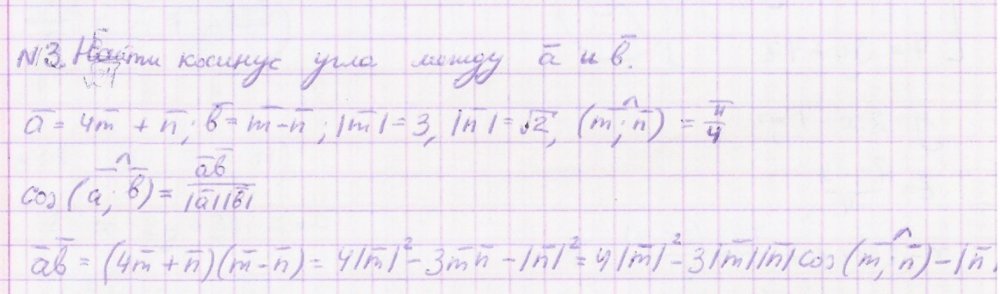 №3. Найти косинус угла между a̅ и b̅.
a̅ = 4m̅ + n̅; b̅ = m̅ - n̅; |m̅| = 3, |n̅| = √2, (m̅;^n̅) = π/4
cos(a̅;^b̅) = a̅b̅/|a̅||b̅|
a̅b̅ = (4m̅ + n̅)(m̅ - n̅) = 4|m̅|² - 3m̅n̅ - |n̅|² = 4|m̅|² - 3|m̅||n̅|cos(m̅;^n̅) - |n̅|